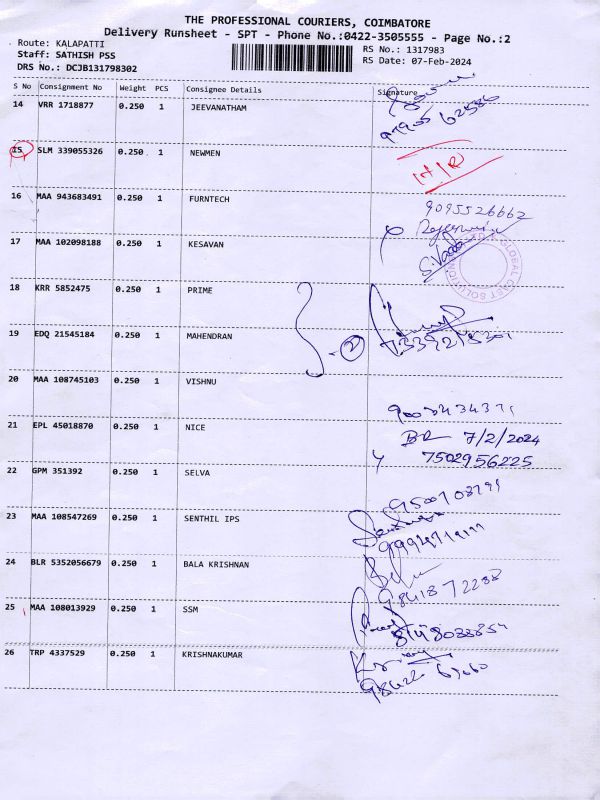 THE PROFESSIONAL COURIERS, COIMBATORE
Delivery Runsheet - SPT - Phone No.:0422-3505555 - Page No.:2
Route: KALAPATTI
RS No.: 1317983
Staff: SATHISH PSS
RS Date: 07-Feb-2024
DRS No.: DCJB131798302
S No Consignment No Weight PCS Consignee Details Signature
14 VRR 1718877 0.250 1 JEEVANATHAM
15 SLM 339055326 0.250 1 NEWMEN
16 MAA 943683491 0.250 1 FURNTECH
9095526662
17 MAA 102098188 0.250 1 KESAVAN
GLOBAL
18 KRR 5852475 0.250 1 PRIME
19 EDQ 21545184 0.250 1 MAHENDRAN
2
20 MAA 108745103 0.250 1 VISHNU
21 EPL 45018870 0.250 1 NICE
7/2/2024
7502956225
22 GPM 351392 0.250 1 SELVA
23 MAA 108547269 0.250 1 SENTHIL IPS
24 BLR 5352056679 0.250 1 BALA KRISHNAN
9841872288
25 MAA 108013929 0.250 1 SSM
26 TRP 4337529 0.250 1 KRISHNAKUMAR